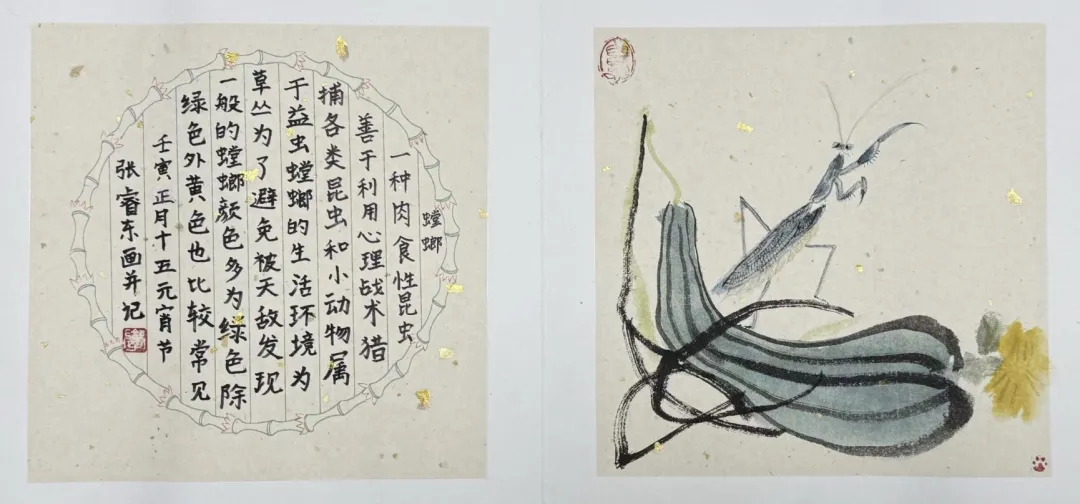 螳螂
一种肉食性昆虫
善于利用心理战术猎
捕各类昆虫和小动物属
于益虫螳螂的生活环境为
草丛为了避免被天敌发现
一般的螳螂颜色多为绿色除
绿色外黄色也比较常见
壬寅正月十五元宵节
张睿东画并记